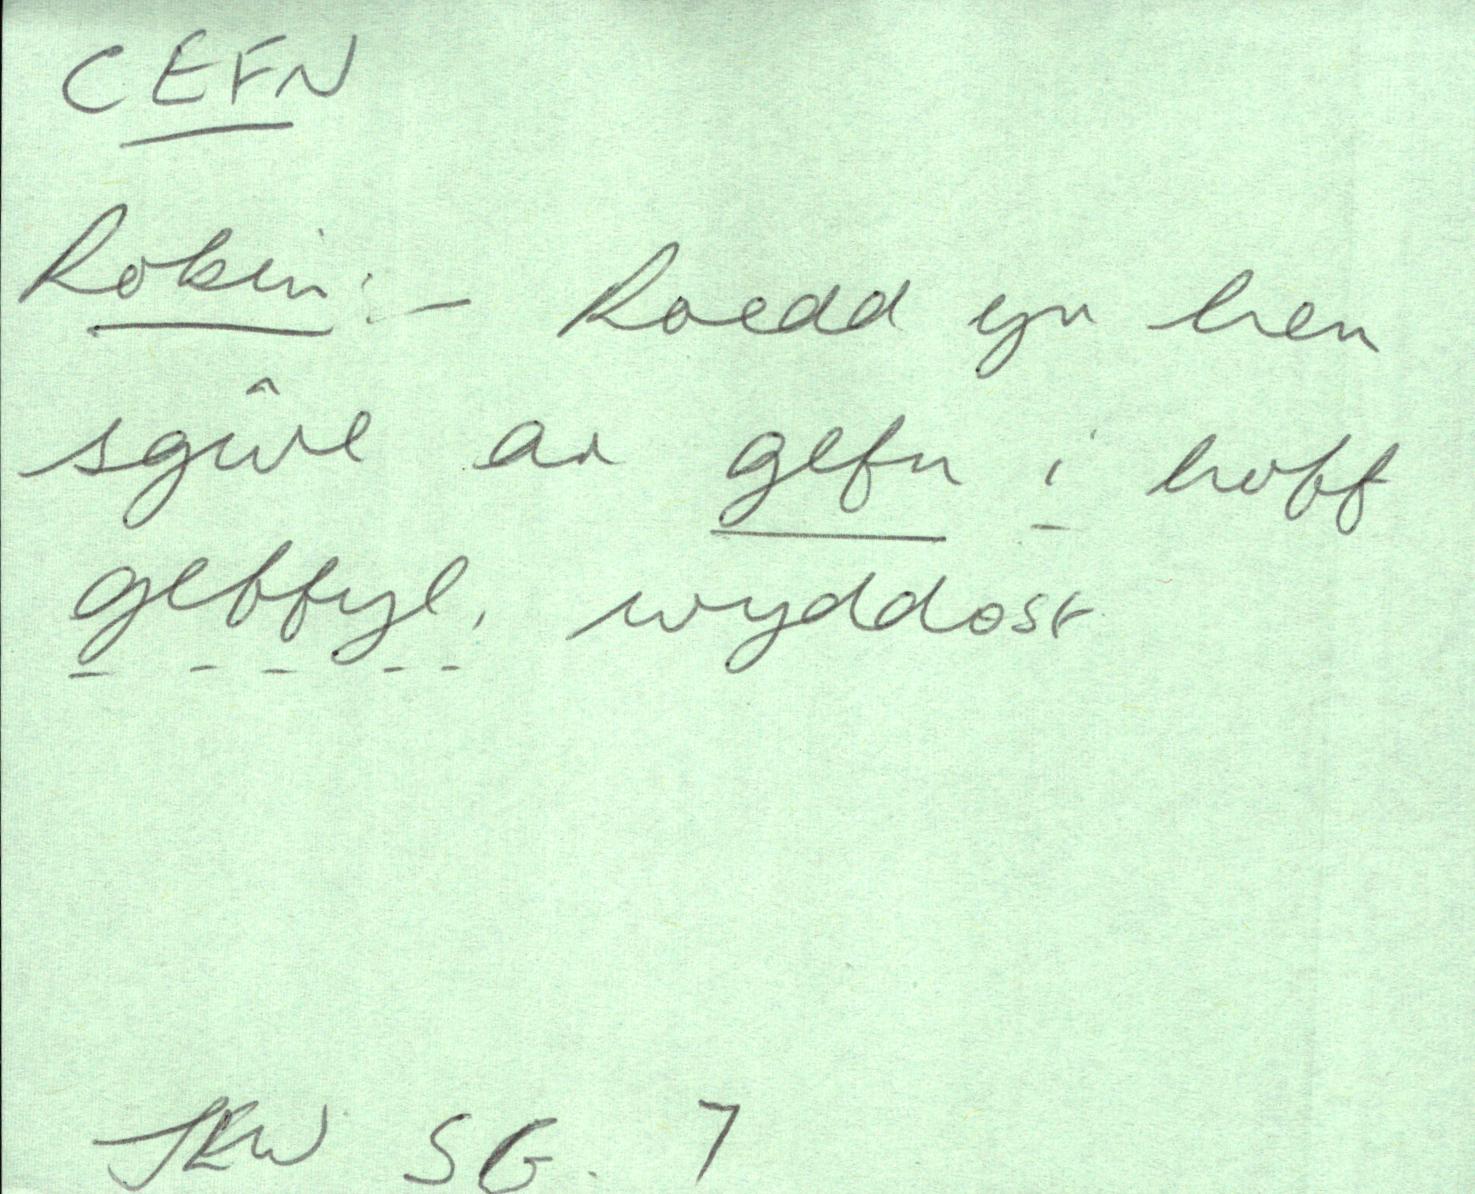 CEFN
Robin:- Roedd yr hen
sgŵl ar gefn i hoff
geffyl, wyddost
JRW SG. 7